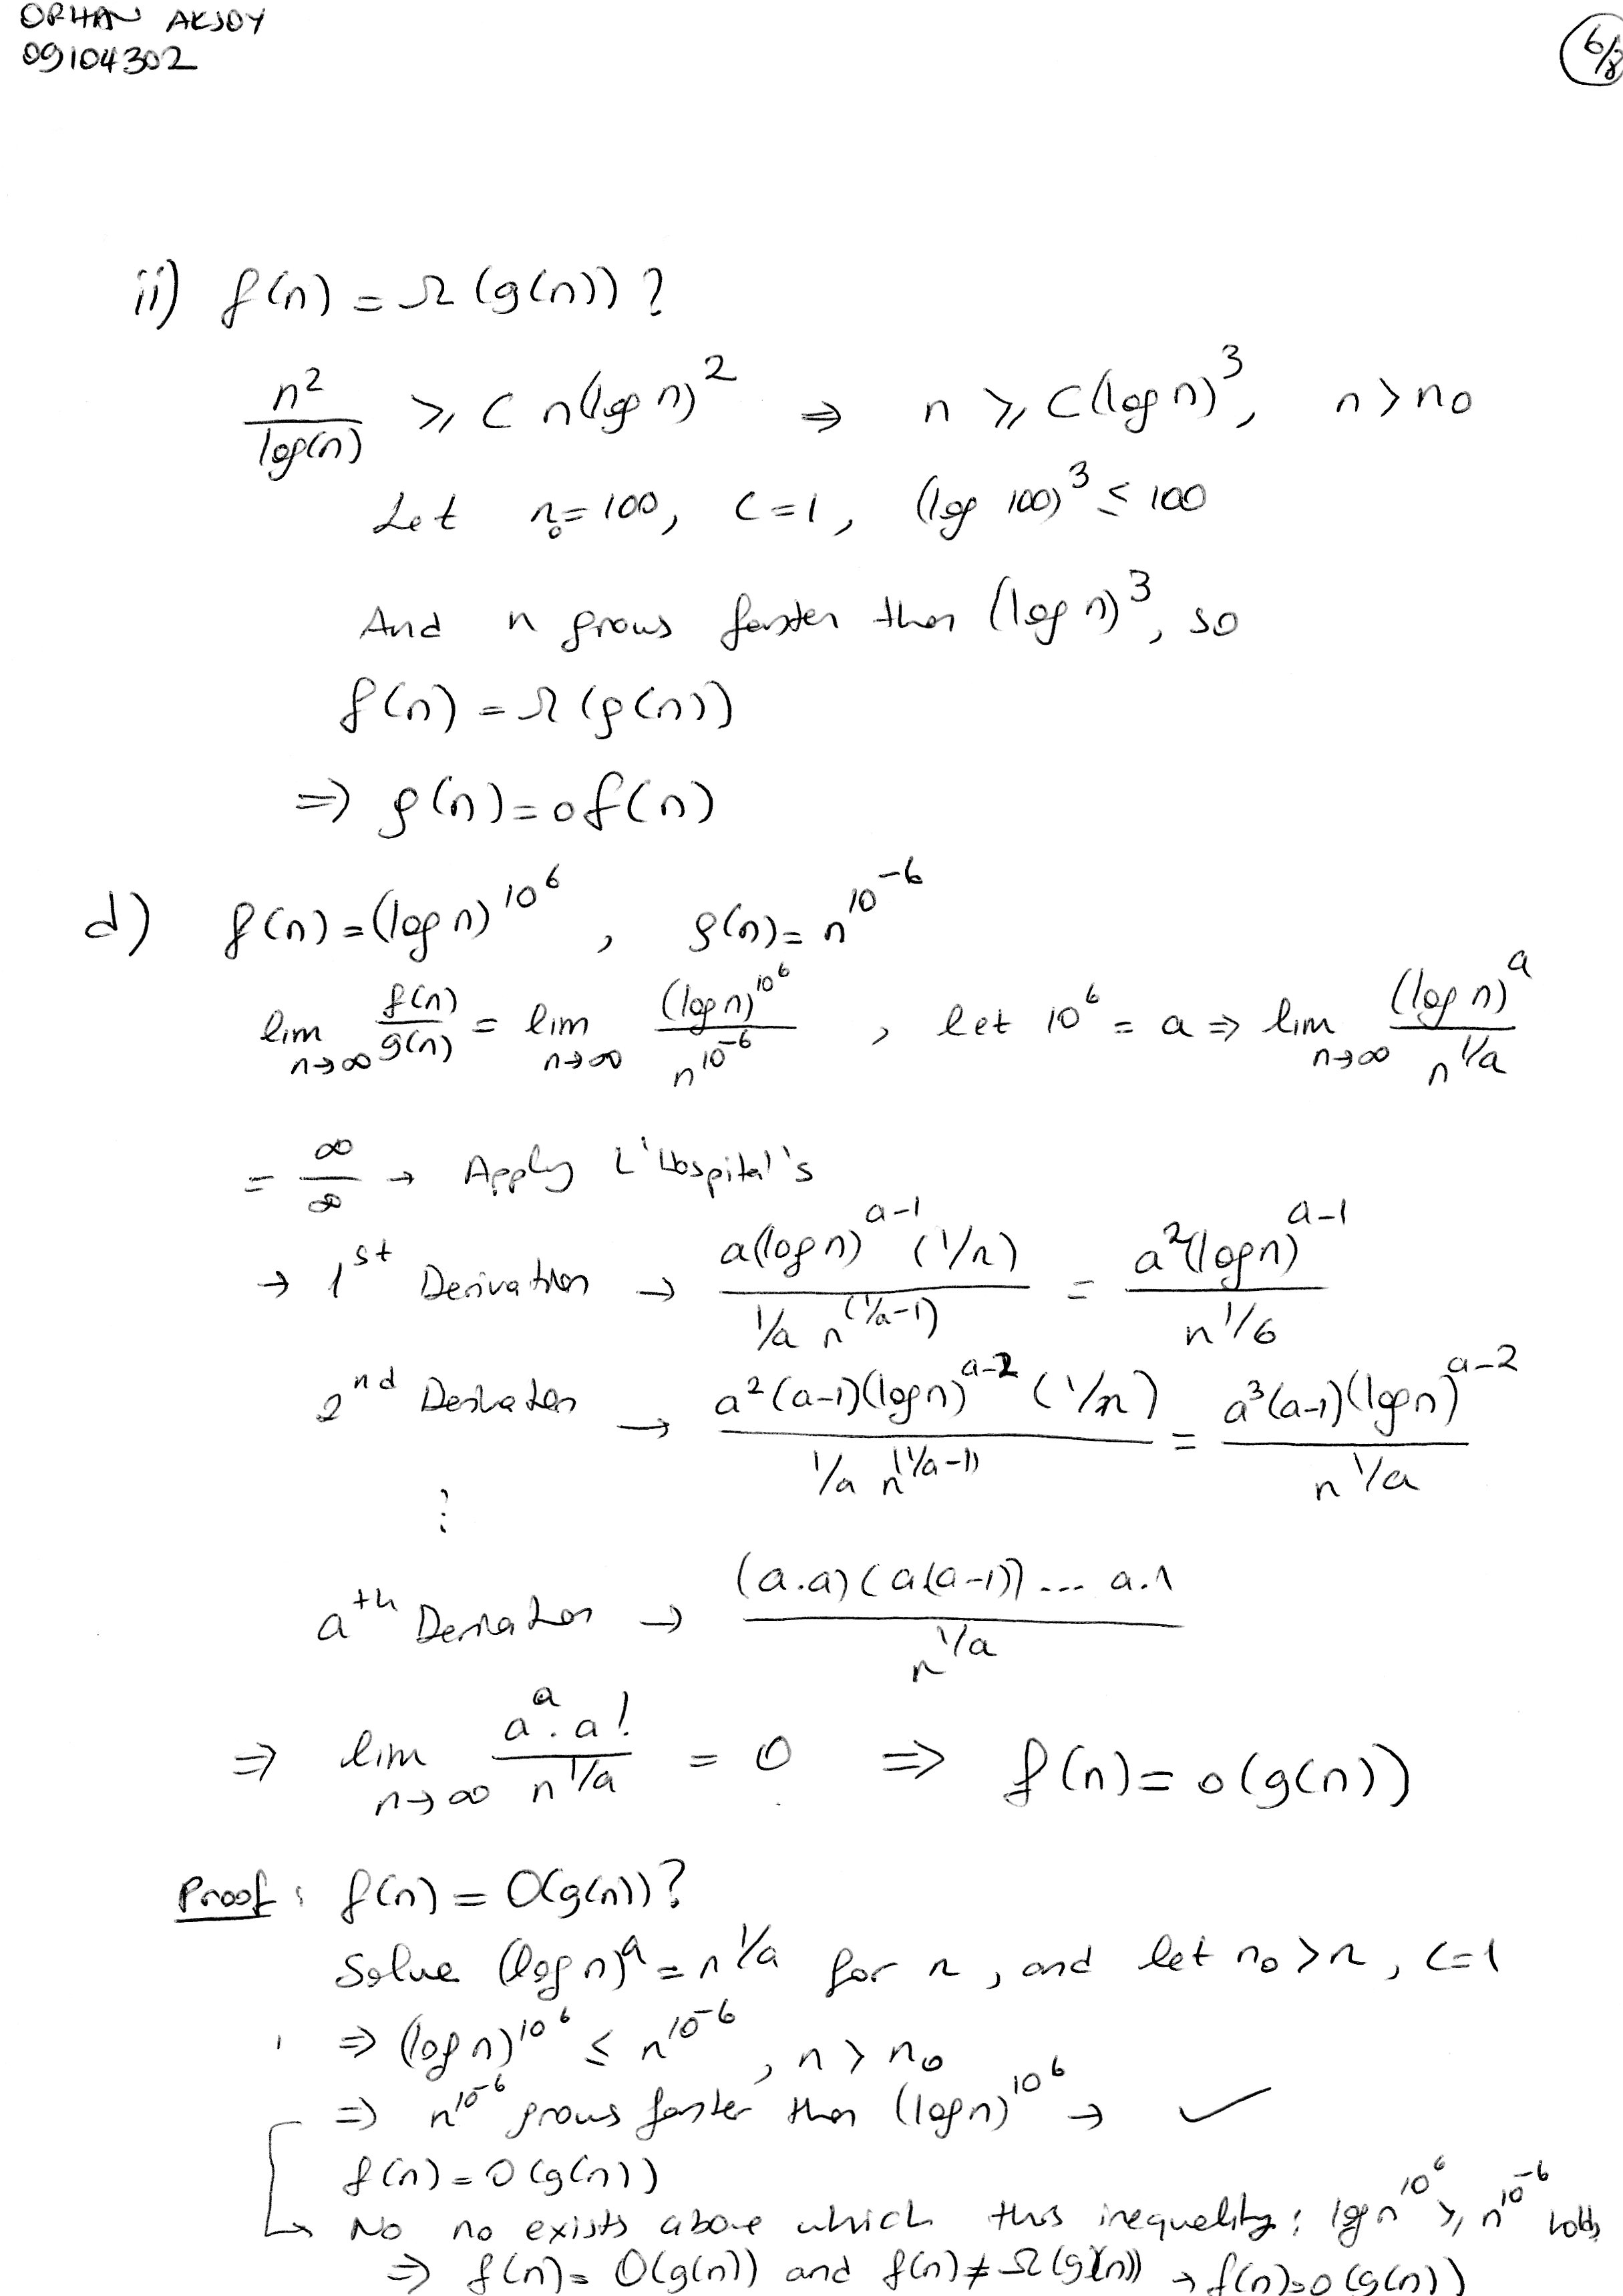 ORHAN AKSOY
09104302
6/8
ii) f(n) = Ω (g(n)) ?
n² / log(n) ≥ C n(log n)² ⇒ n ≥ C(log n)³, n > n₀
Let n₀=100, C=1, (log 100)³ ≤ 100
And n grows faster than (log n)³, so
f(n) = Ω (g(n))
⇒ g(n) = of(n)
d) f(n) = (log n)^10^6 , g(n) = n^10^-6
lim n→∞ f(n)/g(n) = lim n→∞ (log n)^10^6 / n^10^-6 , let 10^6 = a ⇒ lim n→∞ (log n)^a / n^1/a
= ∞/∞ → Apply L'Hospital's
→ 1st Derivation → a(log n)^a-1 (1/n) / 1/a n^(1/a-1) = a²(log n)^a-1 / n^1/6
2nd Derivation → a²(a-1)(log n)^a-2 (1/n) / 1/a n^(1/a-1) = a³(a-1)(log n)^a-2 / n^1/a
⋮
ath Derivation → (a.a)(a(a-1)) ... a.1 / n^1/a
⇒ lim n→∞ a^a . a! / n^1/a = 0 ⇒ f(n) = o(g(n))
Proof : f(n) = O(g(n))?
Solve (log n)^a = n^1/a for n, and let n₀ > n, C=1
⇒ (log n)^10^6 ≤ n^10^-6 , n > n₀
⇒ n^10^-6 grows faster than (log n)^10^6 → ✓
f(n) = O(g(n))
↳ No n₀ exists above which this inequality; log n^10^6 ≥ n^10^-6 holds
⇒ f(n) = O(g(n)) and f(n) ≠ Ω(g(n)) → f(n) = o(g(n))